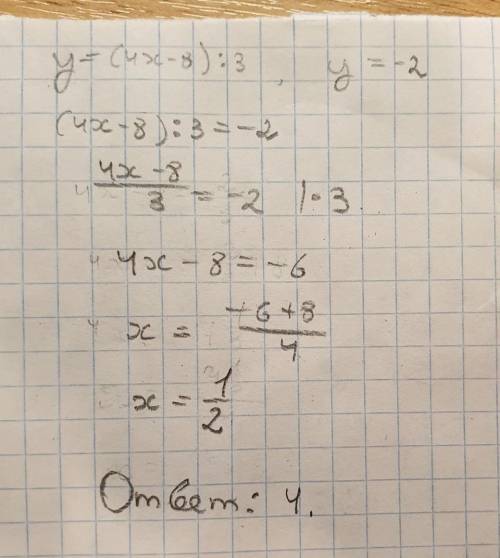 y = (4x-8):3, y = -2
(4x-8):3 = -2
\frac{4x-8}{3} = -2 |·3
4x - 8 = -6
x = \frac{-6+8}{4}
x = \frac{1}{2}
Ответ: 4.